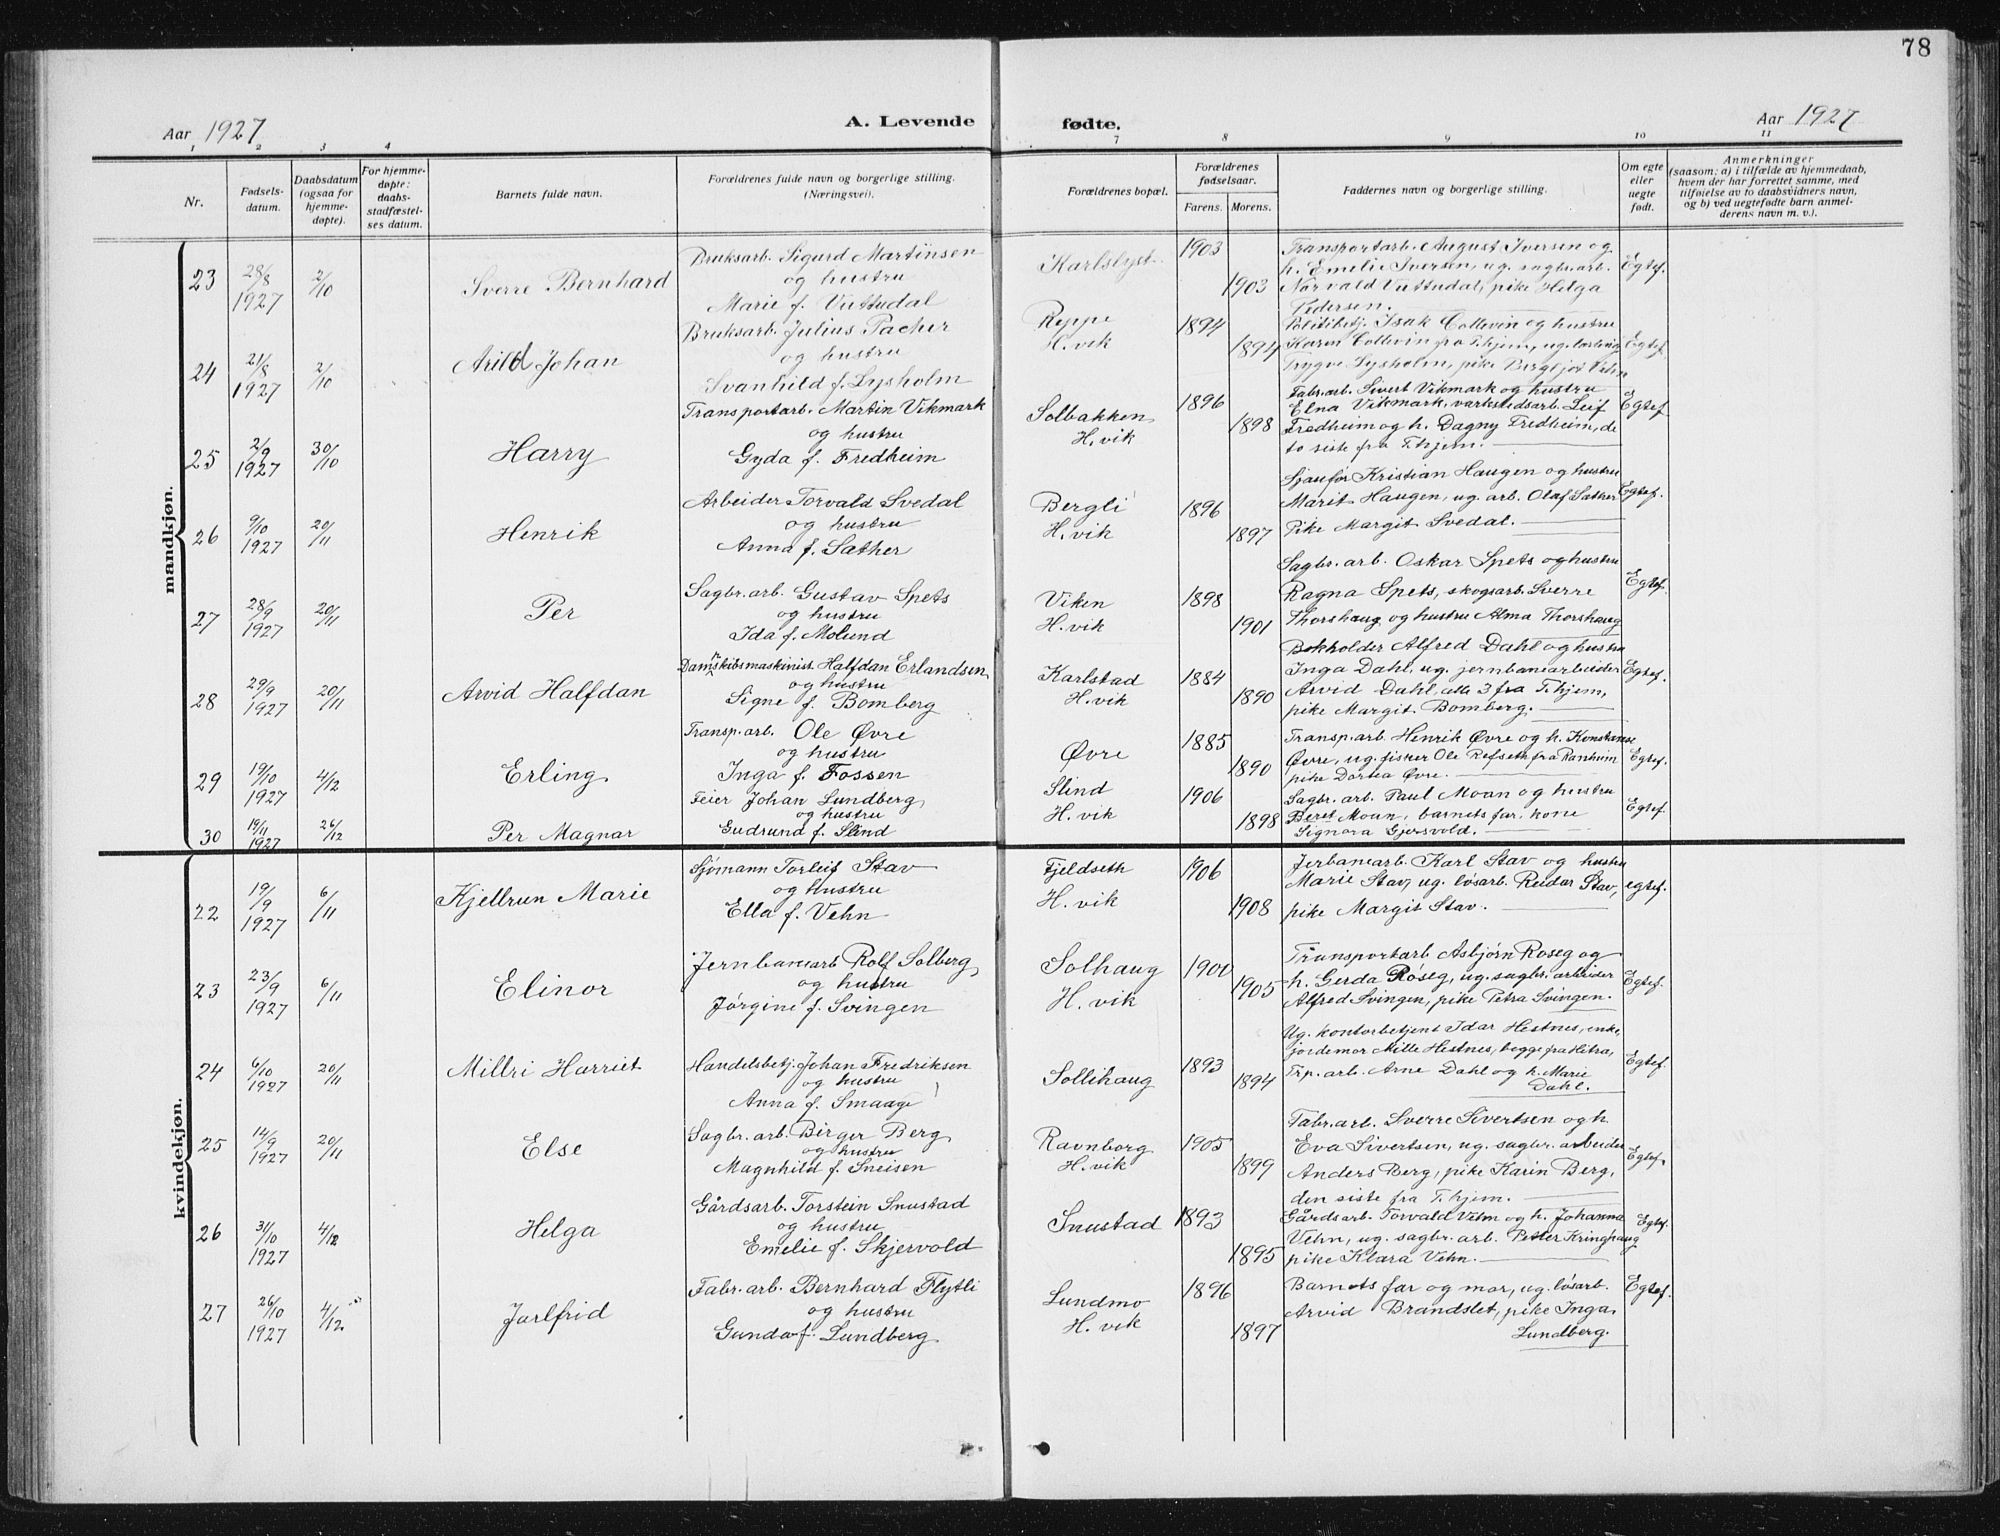 78
Aar 1927
A. Levende
fødte.
Aar 1927
1 2 3 4 7 8 9 10 11
Nr.
Fødsels-
datum.
Daabsdatum
(ogsaa for
hjemme-
døpte).
For hjemme-
døpte:
daabs-
stadfæstel-
ses datum.
Barnets fulde navn.
Forældrenes fulde navn og borgerlige stilling.
(Næringsvei).
Forældrenes bopæl.
Forældrenes
fødselsaar.
Farens. Morens.
Faddernes navn og borgerlige stilling.
Om egte
eller
uegte
født.
Anmerkninger
(saasom: a) i tilfælde av hjemmedaab,
hvem der har forrettet samme, med
tilføielse av to daabsvidners navn,
og b) ved uegtefødte barn anmel-
derens navn m. v.).
mandkjøn.
23
28/8
1927
2/10
Sverre Bernhard
Bruksarb. Sigurd Martinsen
og hustru
Marie f. Vuttudal
Karlslyst
1903
1903
Transportarb. August Iversen og
h. Emelie Iversen, ug. sagbr. arb.
Norvald Vuttudal, pike Helga
Pedersen.
Egtef.
24
21/8
1927
2/10
Arild Johan
Bruksarb. Julius Pacher
og hustru
Svanhild f. Lysholm
Reppe
H.vik
1894
1894
Politibetj. Isak Collevin og hustru
Karen Collevin fra T.hjem, ug.
Trygve Lysholm, pike Bergljot Vehn
Egtef.
25
2/9
1927
30/10
Harry
Transportarb. Martin Vikmark
og hustru
Gyda f. Fredheim
Solbakken
H.vik
1896
1898
Fabr.arb. Sivert Vikmark og hustru
Elna Vikmark, varkstedsarb. Leif
Fredheim og h. Dagny Fredheim, de
to siste fra T.hjem.
Egtef.
26
9/10
1927
20/11
Henrik
Arbeider Torvald Svedal
og hustru
Anna f. Sather
Bergli
H.vik
1896
1897
Sjaufør Kristian Haugen og hustru
Marit Haugen, ug. arb. Olaf Sather
Pike Margit Svedal.
Egtef.
27
28/9
1927
20/11
Per
Sagbr.arb. Gustav Spets
og hustru
Ida f. Molund
Viken
H.vik
1898
1901
Sagbr. arb. Oskar Spets og hustru
Ragna Spets, skogsarb. Sverre
Thorshaug og hustru Alma Thorshaug
Egtef.
28
29/9
1927
20/11
Arvid Halfdan
Dampskibsmaskinist Halfdan Erlandsen
og hustru
Signe f. Bomberg
Karlstad
H.vik
1884
1890
Bokholder Alfred Dahl og hustru
Inga Dahl, ug. jernbanearbeider
Arvid Dahl, alle 3 fra T.hjem,
pike Margit Bomberg.
Egtef.
29
19/10
1927
4/12
Erling
Transp.arb. Ole Øvre
og hustru
Inga f. Fossen
Øvre
1885
1890
Transp.arb. Henrik Øvre og h. Konstanse
Øvre, ug. fisker Ole Refseth fra Ranheim
pike Dortea Øvre.
Egtef.
30
19/11
1927
26/12
Per Magnar
Feier Johan Lundberg
og hustru
Gudrund f. Slind
Slind
H.vik
1906
1898
Sagbr. arb. Paul Moan og hustru
Beret Moan, barnets far, kone
Signora Gjersvold.
Egtef.
kvindekjøn.
22
19/9
1927
6/11
Kjellrun Marie
Sjømann Torleif Stav
og hustru
Ella f. Vehn
Fjeldseth
H.vik
1906
1908
Jerbanearb. Karl Stav og hustru
Marie Stav, ug. løsarb. Reidar Stav,
pike Margit Stav.
egtef.
23
23/9
1927
6/11
Elinor
Jernbanearb Rolf Solberg
og hustru
Jørgine f. Svingen
Solhaug
H.vik
1900
1905
Transportarb Asbjørn Roseg og
h. Gerda Røseg, ug. sagbr. arbeider
Alfred Svingen, pike Petra Svingen.
Egtef.
24
6/10
1927
20/11
Millri Harriet
Handelsbetj. Johan Fredriksen
og hustru
Anna f. Smaage
Sollihaug
1893
1894
Ug. kontorbetjent Idar Hestnes, enke,
jordemor Mille Hestnes, begge fra Hitra,
Trp. arb. Arne Dahl og h. Marie
Dahl.
Egtef.
25
14/9
1927
20/11
Else
Sagbr. arb. Birger Berg
og hustru
Magnhild f. Sneisen
Ravnborg
H.vik
1905
1899
Fabr.arb. Sverre Sivertsen og h.
Eva Sivertsen, ug. sagbr. arbeider
Anders Berg, pike Karin Berg,
den siste fra T.hjem.
Egtef.
26
31/10
1927
4/12
Helga
Gårdsarb. Torstein Snustad
og hustru
Emelie f. Skjervold
Snustad
1893
1895
Gårdsarb. Torvald Vehn og h. Johanna
Vehn, ug. sagbr. arb. Petter Kringhaug
pike Klara Vehn.
Egtef.
27
26/10
1927
4/12
Jarlfrid
Fabr. arb. Bernhard Flytli
og hustru
Gunda f. Lundberg
Lundmo
H.vik
1896
1897
Barnets far og mor, ug. løsarb.
Arvid Brandslet, pike Inga
Lundberg.
Egtef.